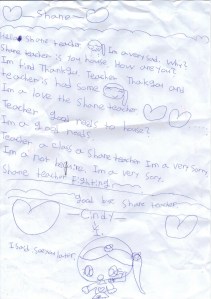 Shane
Hello shane teacher Im a very sad. Why?
Shane teacher is you house How are you?
Im kind Thankyu, Teacher Thankyou and
teacher is had some
Im a love the Shane teacher
Teacher good needs to have?
Im a good needs
Teacher a class a Shane teacher Im a very sorry.
Im a not Im a very sorry,
Shane teacher Fighting!
good bye Shane teacher
Cindy